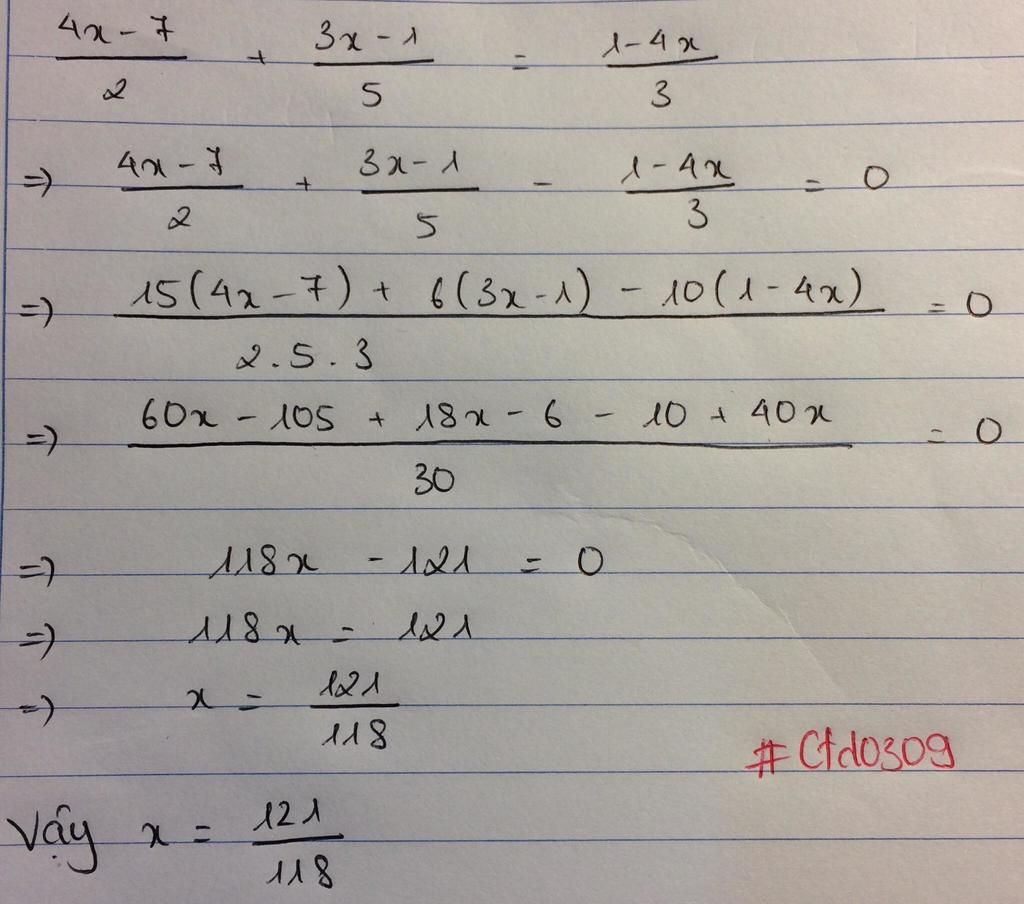 4x - 7 / 2 + 3x - 1 / 5 = 1 - 4x / 3
=> 4x - 7 / 2 + 3x - 1 / 5 - 1 - 4x / 3 = 0
=> 15(4x - 7) + 6(3x - 1) - 10(1 - 4x) / 2.5.3 = 0
=> 60x - 105 + 18x - 6 - 10 + 40x / 30 = 0
=> 118x - 121 = 0
=> 118x = 121
=> x = 121 / 118
#Ctd0309
Vậy x = 121 / 118